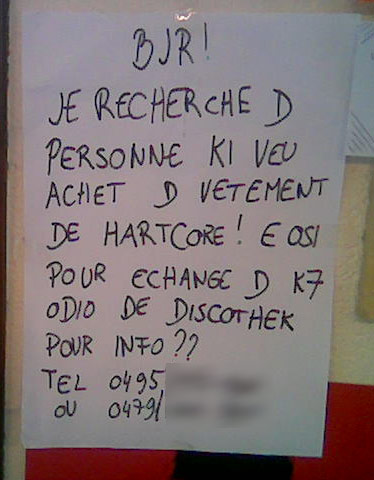 BJR!
JE RECHERCHE D
PERSONNE KI VEU
ACHET D VETEMENT
DE HARTCORE! E OSI
POUR ECHANGE D K7
ODIO DE DISCOTHEK
POUR INFO??
TEL 0495
OU 0479/